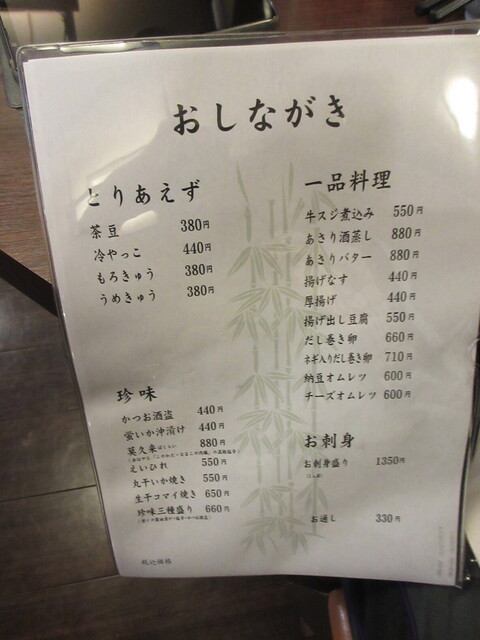 おしながき
とりあえず
茶豆 380円
冷やっこ 440円
もろきゅう 380円
うめきゅう 380円
珍味
かつお酒盗 440円
蛍いか沖漬け 440円
莫久来 ばくらい 880円
えいひれ 550円
丸干いか焼き 550円
生干コマイ焼き 650円
珍味三種盛り 660円
税込価格
一品料理
牛スジ煮込み 550円
あさり酒蒸し 880円
あさりバター 880円
揚げなす 440円
厚揚げ 440円
揚げ出し豆腐 550円
だし巻き卵 660円
ネギ入りだし巻き卵 710円
納豆オムレツ 600円
チーズオムレツ 600円
お刺身
お刺身盛り 1350円
お通し 330円